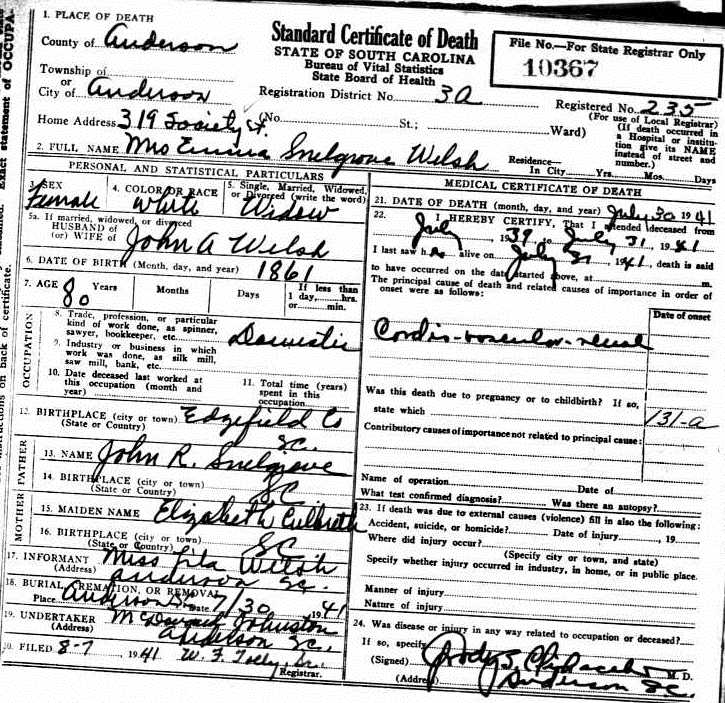 1. PLACE OF DEATH
County of Anderson
Township of
or
City of Anderson
Home Address 319 Society St. (No. St.; Ward)
Standard Certificate of Death
STATE OF SOUTH CAROLINA
Bureau of Vital Statistics
State Board of Health
Registration District No. 3A
File No.—For State Registrar Only
10367
Registered No. 235
(For use of Local Registrar)
(If death occurred in
a Hospital or institu-
tion give its NAME
instead of street and
number.)
2. FULL NAME Mrs Emma Snelgrove Welsh
Residence—
In City Yrs. Mos. Days
PERSONAL AND STATISTICAL PARTICULARS
3. SEX
Female
4. COLOR OR RACE
White
5. Single, Married, Widowed,
or Divorced (write the word)
Widow
5a. If married, widowed, or divorced
HUSBAND of
(or) WIFE of John A Welsh
6. DATE OF BIRTH (Month, day, and year) 1861
7. AGE 80 Years Months Days
If less than
1 day, hrs.
or min.
OCCUPATION
8. Trade, profession, or particular
kind of work done, as spinner,
sawyer, bookkeeper, etc. Domestic
9. Industry or business in which
work was done, as silk mill,
saw mill, bank, etc.
10. Date deceased last worked at
this occupation (month and
year)
11. Total time (years)
spent in this
occupation
12. BIRTHPLACE (city or town) Edgefield Co
(State or Country) SC.
FATHER
13. NAME John R. Snelgrove
14. BIRTHPLACE (city or town)
(State or Country) SC
MOTHER
15. MAIDEN NAME Elizabeth Culbreth
16. BIRTHPLACE (city or town)
(State or Country) SC
17. INFORMANT Miss Lila Welsh
(Address) Anderson SC.
18. BURIAL, CREMATION, OR REMOVAL
Place Anderson SC Date 7/30 1941
19. UNDERTAKER McDougald Johnston
(Address) Anderson SC.
20. FILED 8-7, 1941 W. F. Tolly, Sr.
Registrar.
MEDICAL CERTIFICATE OF DEATH
21. DATE OF DEATH (month, day, and year) July 30 1941
22. I HEREBY CERTIFY, That I attended deceased from
July, 1939 to July 31, 1941
I last saw h alive on July 31, 1941, death is said
to have occurred on the date stated above, at m.
The principal cause of death and related causes of importance in order of
onset were as follows:
Date of onset
Cardio-vascular-renal
Was this death due to pregnancy or to childbirth? If so,
state which 131-a
Contributory causes of importance not related to principal cause:
Name of operation Date of
What test confirmed diagnosis? Was there an autopsy?
23. If death was due to external causes (violence) fill in also the following:
Accident, suicide, or homicide? Date of injury , 19
Where did injury occur?
(Specify city or town, and state)
Specify whether injury occurred in industry, in home, or in public place.
Manner of injury
Nature of injury
24. Was disease or injury in any way related to occupation or deceased?
If so, specify
(Signed) M. D.
(Address) Anderson SC.
Exact statement of OCCUPA-
on back of certificate.